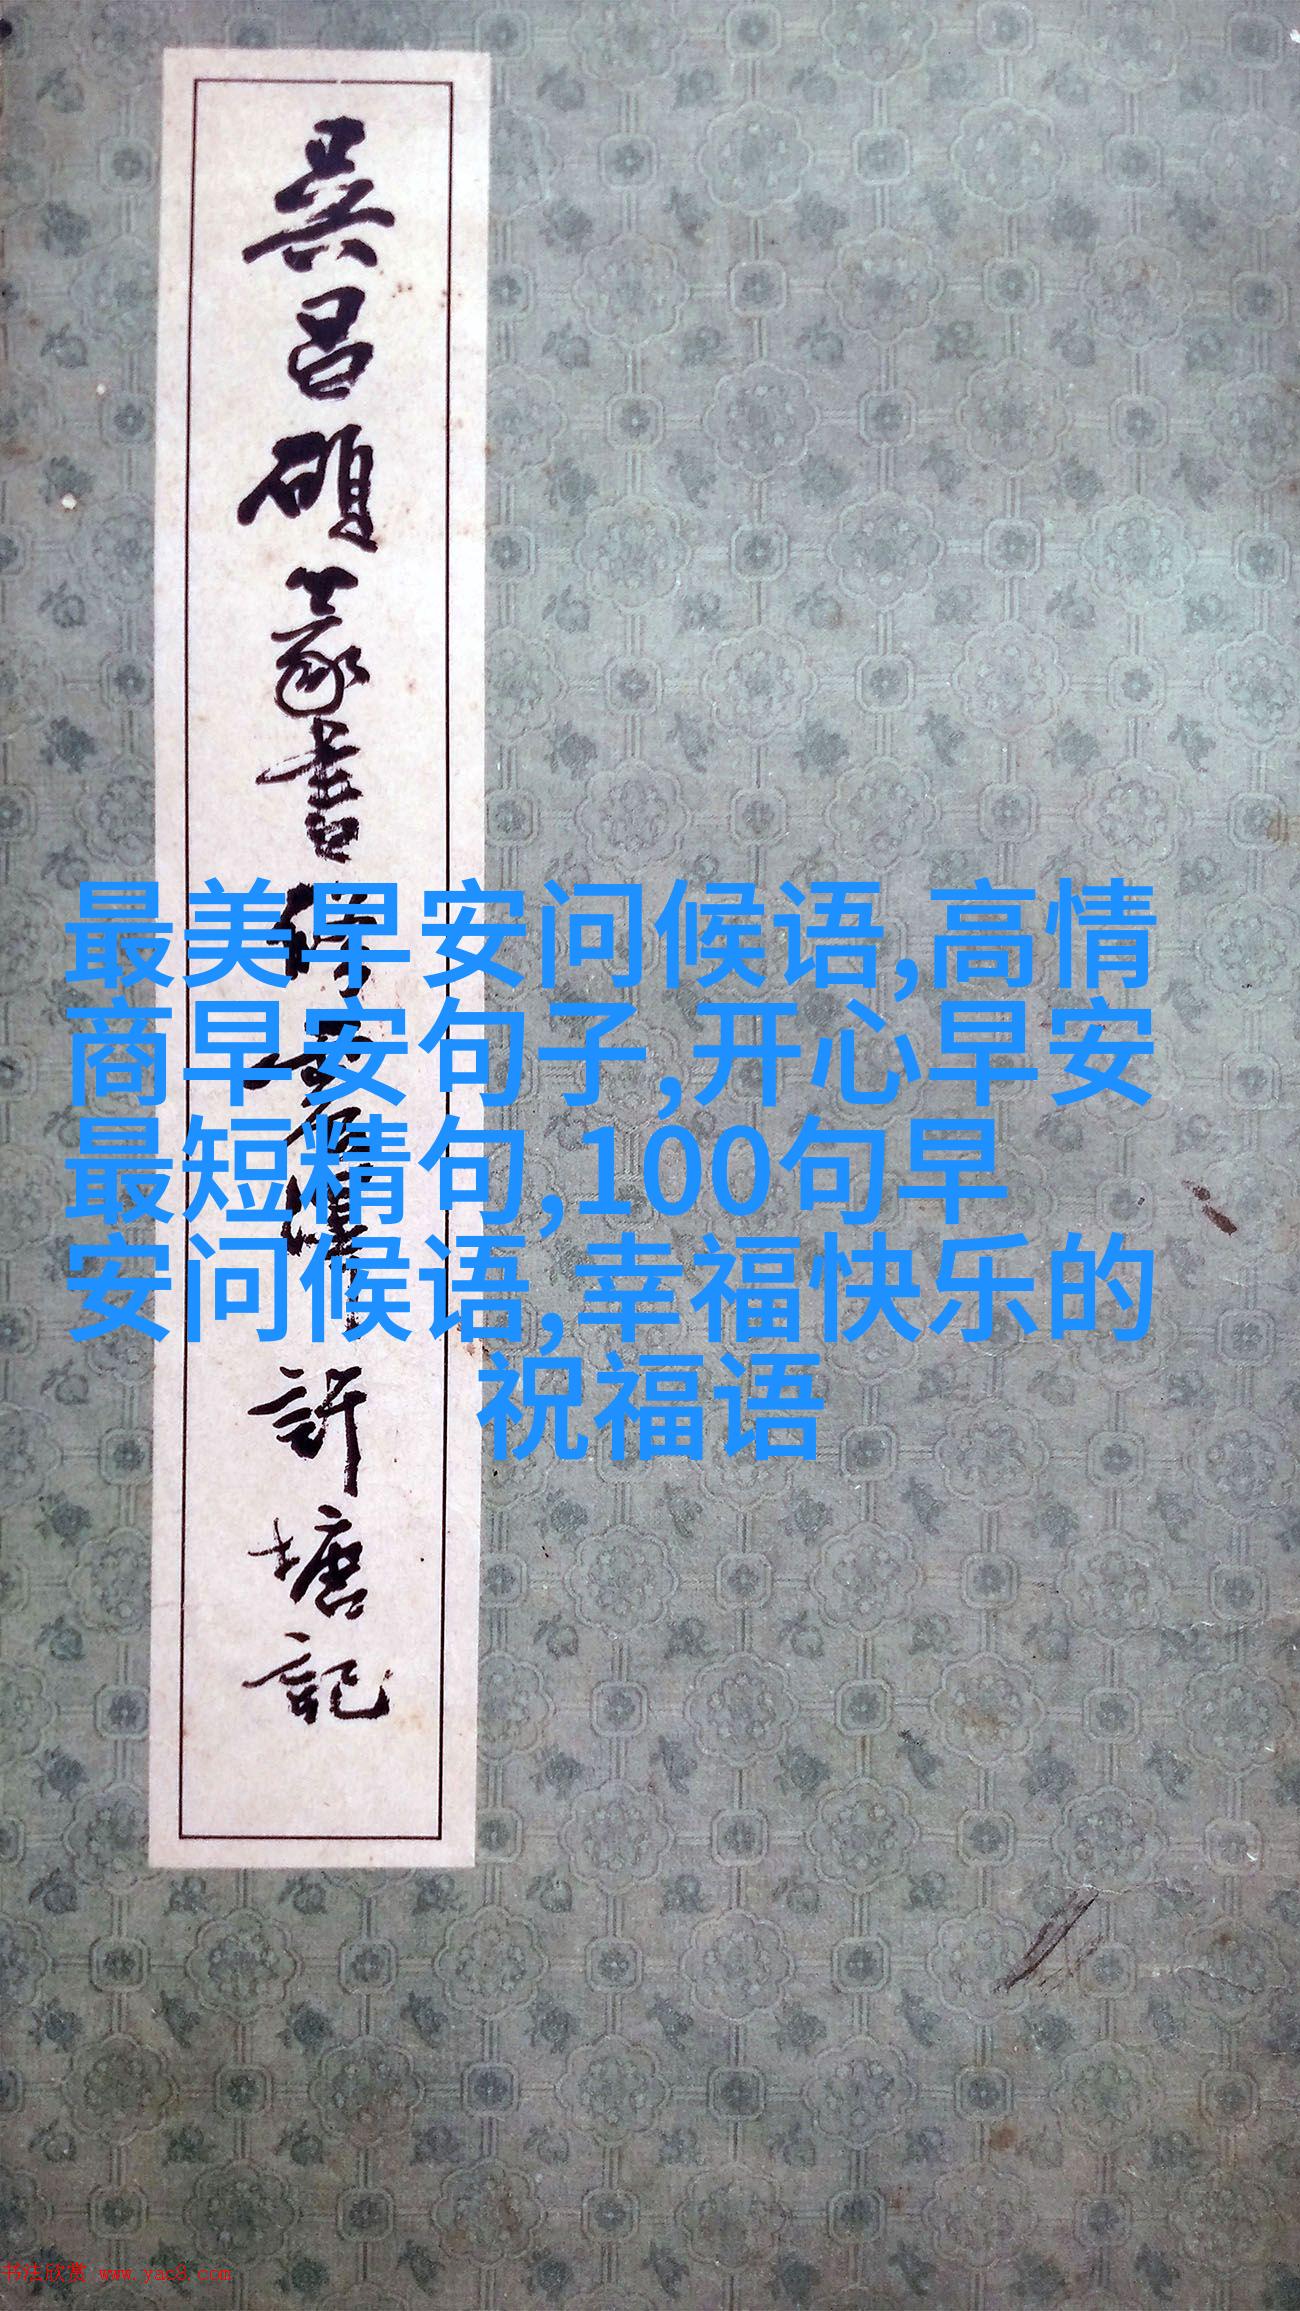 吴昌硕篆书修震泽许塘记
最美早安问候语,高情
商早安句子,开心早安
最短精句,100句早
安问候语,幸福快乐的
祝福语
书法欣赏 www.yac8.com